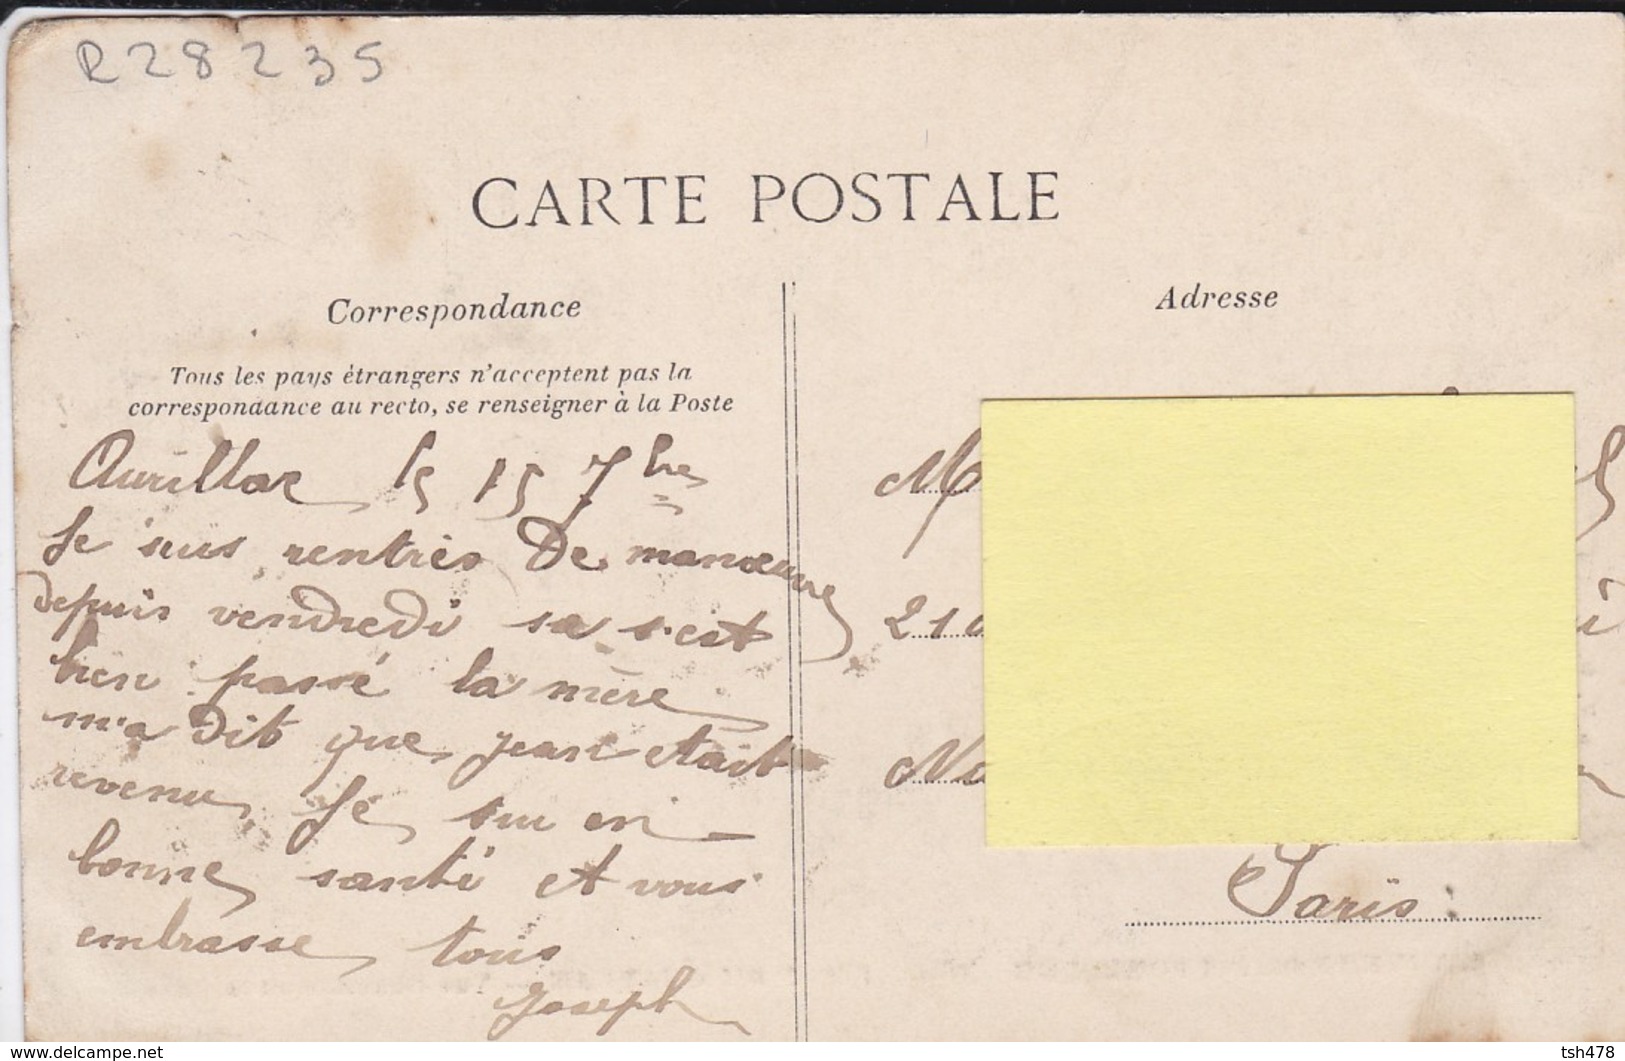 R28235
CARTE POSTALE
Correspondance
Adresse
Tous les pays étrangers n'acceptent pas la
correspondance au recto, se renseigner à la Poste
Aurillac le 15 7bre
Je suis rentrés De manœuvre
depuis vendredi sa s'est
bien passé la mère
m'a Dit que jean etait
revenu, Je sui en
bonne santé et vous
embrasse tous
Joseph
M
210
Paris
delcampe.net
tsh478